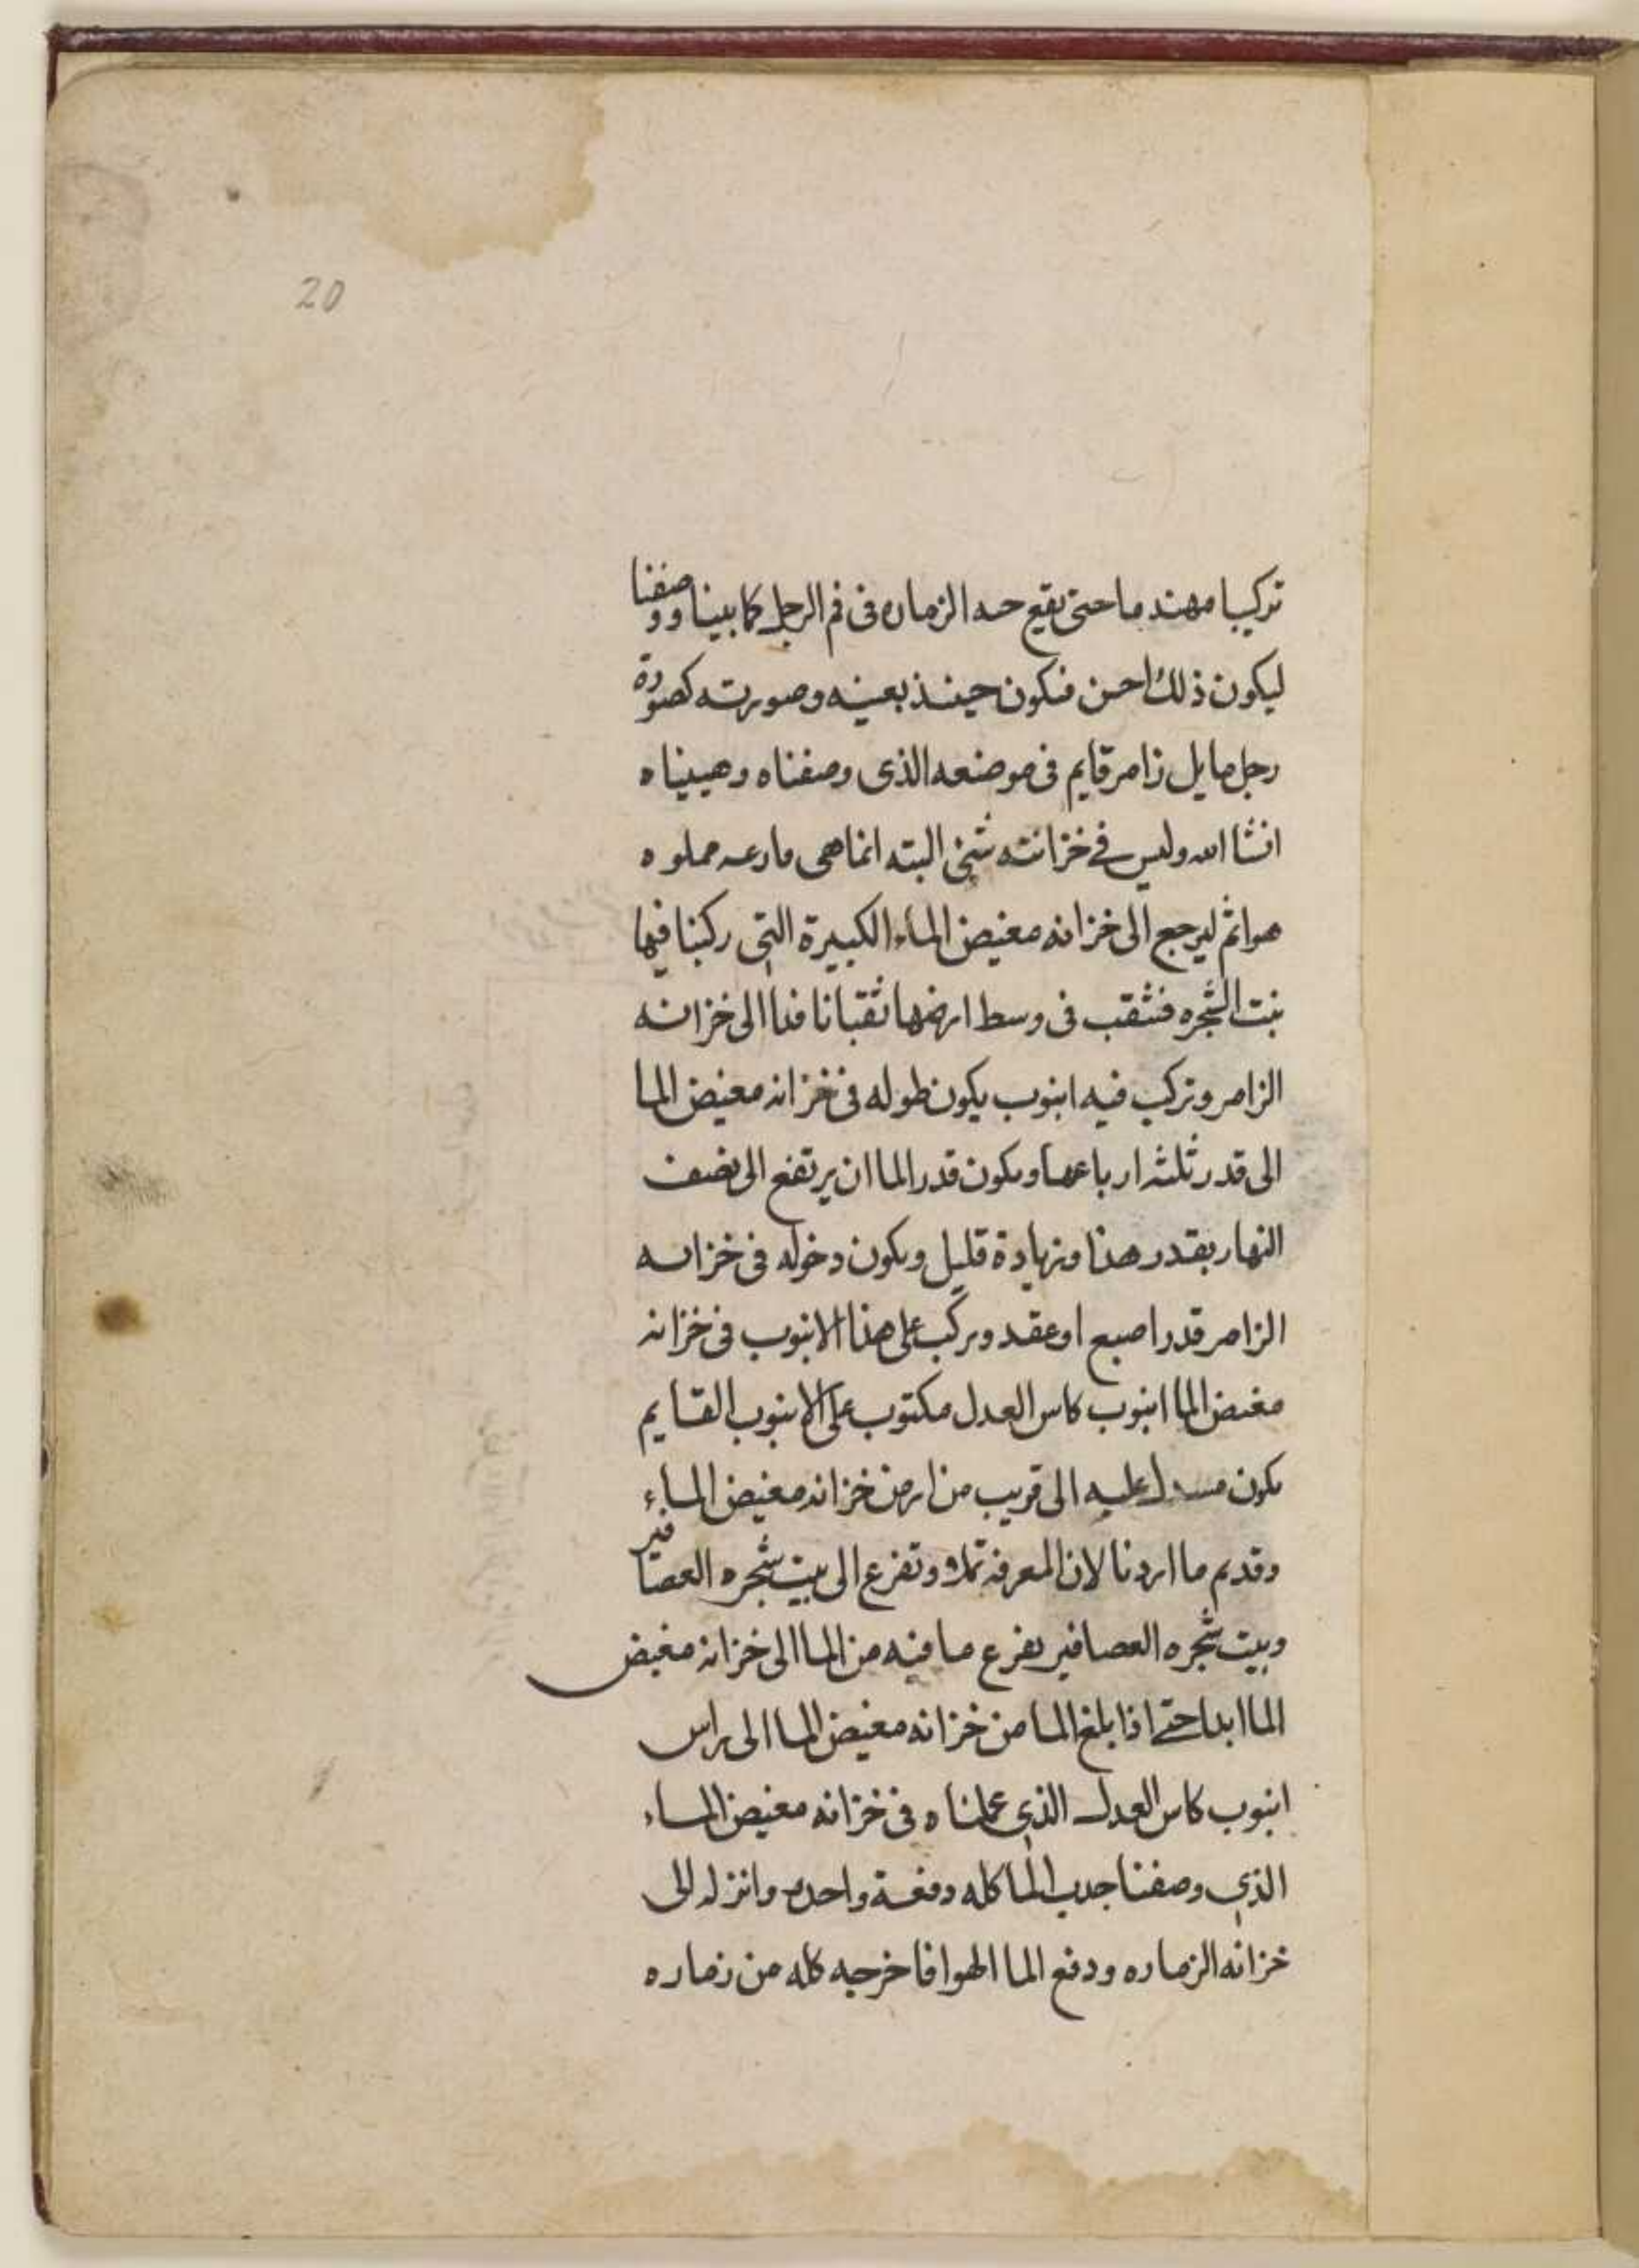 20
تركيبا مهندما حتى يقع حه الزماره فى فم الرجل كما بينا ووصفنا
ليكون ذلك احسن فيكون حينئذ بعينه وصورته كصورة
رجل مايل زامر قايم فى موضعه الذى وصفناه وهييناه
انشا الله وليس فى خزانته شئ البته انما هى فارغه مملوه
هوا ثم ليرجع الى خزانه مغيض الماء الكبيرة التى ركبنا فيها
بنت الشجره فنثقب فى وسط ارضها ثقبا نافذا الى خزانه
الزامر ونركب فيه انبوب يكون طوله فى خزانه مغيض الما
الى قدر ثلثه ارباعها ويكون قدر الما ان يرتفع الى نصف
النهار بقدر هذا وزيادة قليل ويكون دخوله فى خزانه
الزامر قدر اصبع او عقد ويركب على هذا الانبوب فى خزانه
مغيض الما انبوب كاس العدل مكتوب على الانبوب القايم
يكون عليه الى قريب من ارض خزانه مغيض الماء
وقد تم ما اردنا لان المغرفه تملا وتفرغ الى بيت شجره العصافير
وبيت شجره العصافير يفرغ ما فيه من الما الى خزانه مغيض
الما ابدا حتى اذا بلغ الما من خزانه مغيض الما الى راس
انبوب كاس العدل الذى عملناه فى خزانه مغيض الماء
الذى وصفنا جذب الما كله دفعة واحدة وانزله الى
خزانه الزماره ودفع الما الهوا فاخرجه كله من زماره